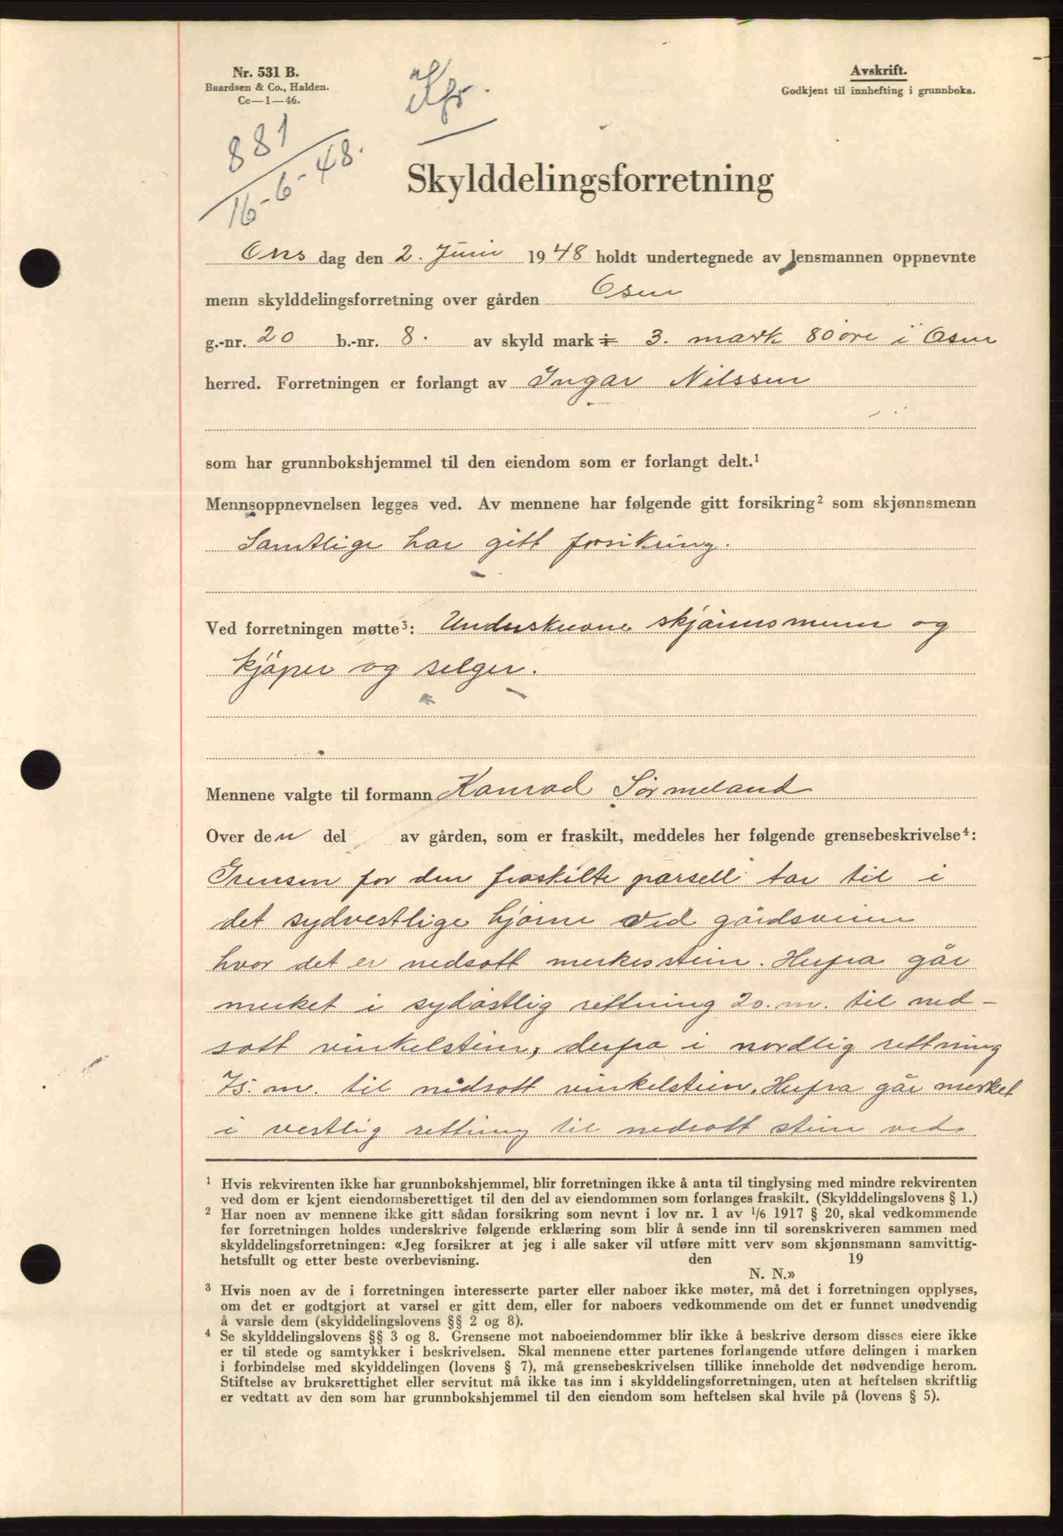 Nr. 531 B.
Baardsen & Co., Halden.
Ce—1—46.
Kfr.
Avskrift.
Godkjent til innhefting i grunnboka.
881
16-6-48.
Skylddelingsforretning
Ons dag den 2. Juni 1948 holdt undertegnede av lensmannen oppnevnte
menn skylddelingsforretning over gården Osen
g.-nr. 20 b.-nr. 8. av skyld mark 3. mark 80 øre i Osen
herred. Forretningen er forlangt av Ingar Nilssen
som har grunnbokshjemmel til den eiendom som er forlangt delt.¹
Mennsoppnevnelsen legges ved. Av mennene har følgende gitt forsikring² som skjønnsmenn
Samtlige har gitt forsikring.
Ved forretningen møtte³: Underskrevne skjønnsmenn og
kjøper og selger.
Mennene valgte til formann Konrad Sørmeland
Over den del av gården, som er fraskilt, meddeles her følgende grensebeskrivelse⁴:
Grensen for den fraskilte parsell tar til i
det sydvestlige hjørne ved gårdsveien
hvor det er nedsatt merkesstein. Herfra går
merket i sydøstlig rettning 20.m. til ned-
satt vinkelstein, derfra i nordlig rettning
75.m. til nedsatt vinkelstein. Herfra går merket
i vestlig rettning til nedsatt stein ved
¹ Hvis rekvirenten ikke har grunnbokshjemmel, blir forretningen ikke å anta til tinglysing med mindre rekvirenten
ved dom er kjent eiendomsberettiget til den del av eiendommen som forlanges fraskilt. (Skylddelingslovens § 1.)
² Har noen av mennene ikke gitt sådan forsikring som nevnt i lov nr. 1 av ¹/₆ 1917 § 20, skal vedkommende
før forretningen holdes underskrive følgende erklæring som blir å sende inn til sorenskriveren sammen med
skylddelingsforretningen: «Jeg forsikrer at jeg i alle saker vil utføre mitt verv som skjønnsmann samvittig-
hetsfullt og etter beste overbevisning. den 19
N. N.»
³ Hvis noen av de i forretningen interesserte parter eller naboer ikke møter, må det i forretningen opplyses,
om det er godtgjort at varsel er gitt dem, eller for naboers vedkommende om det er funnet unødvendig
å varsle dem (skylddelingslovens §§ 2 og 8).
⁴ Se skylddelingslovens §§ 3 og 8. Grensene mot naboeiendommer blir ikke å beskrive dersom disses eiere ikke
er til stede og samtykker i beskrivelsen. Skal mennene etter partenes forlangende utføre delingen i marken
i forbindelse med skylddelingen (lovens § 7), må grensebeskrivelsen tillike inneholde det nødvendige herom.
Stiftelse av bruksrettighet eller servitut må ikke tas inn i skylddelingsforretningen, uten at heftelsen skriftlig
er vedtatt av den som har grunnbokshjemmel til den eiendom som heftelsen skal hvile på (lovens § 5).